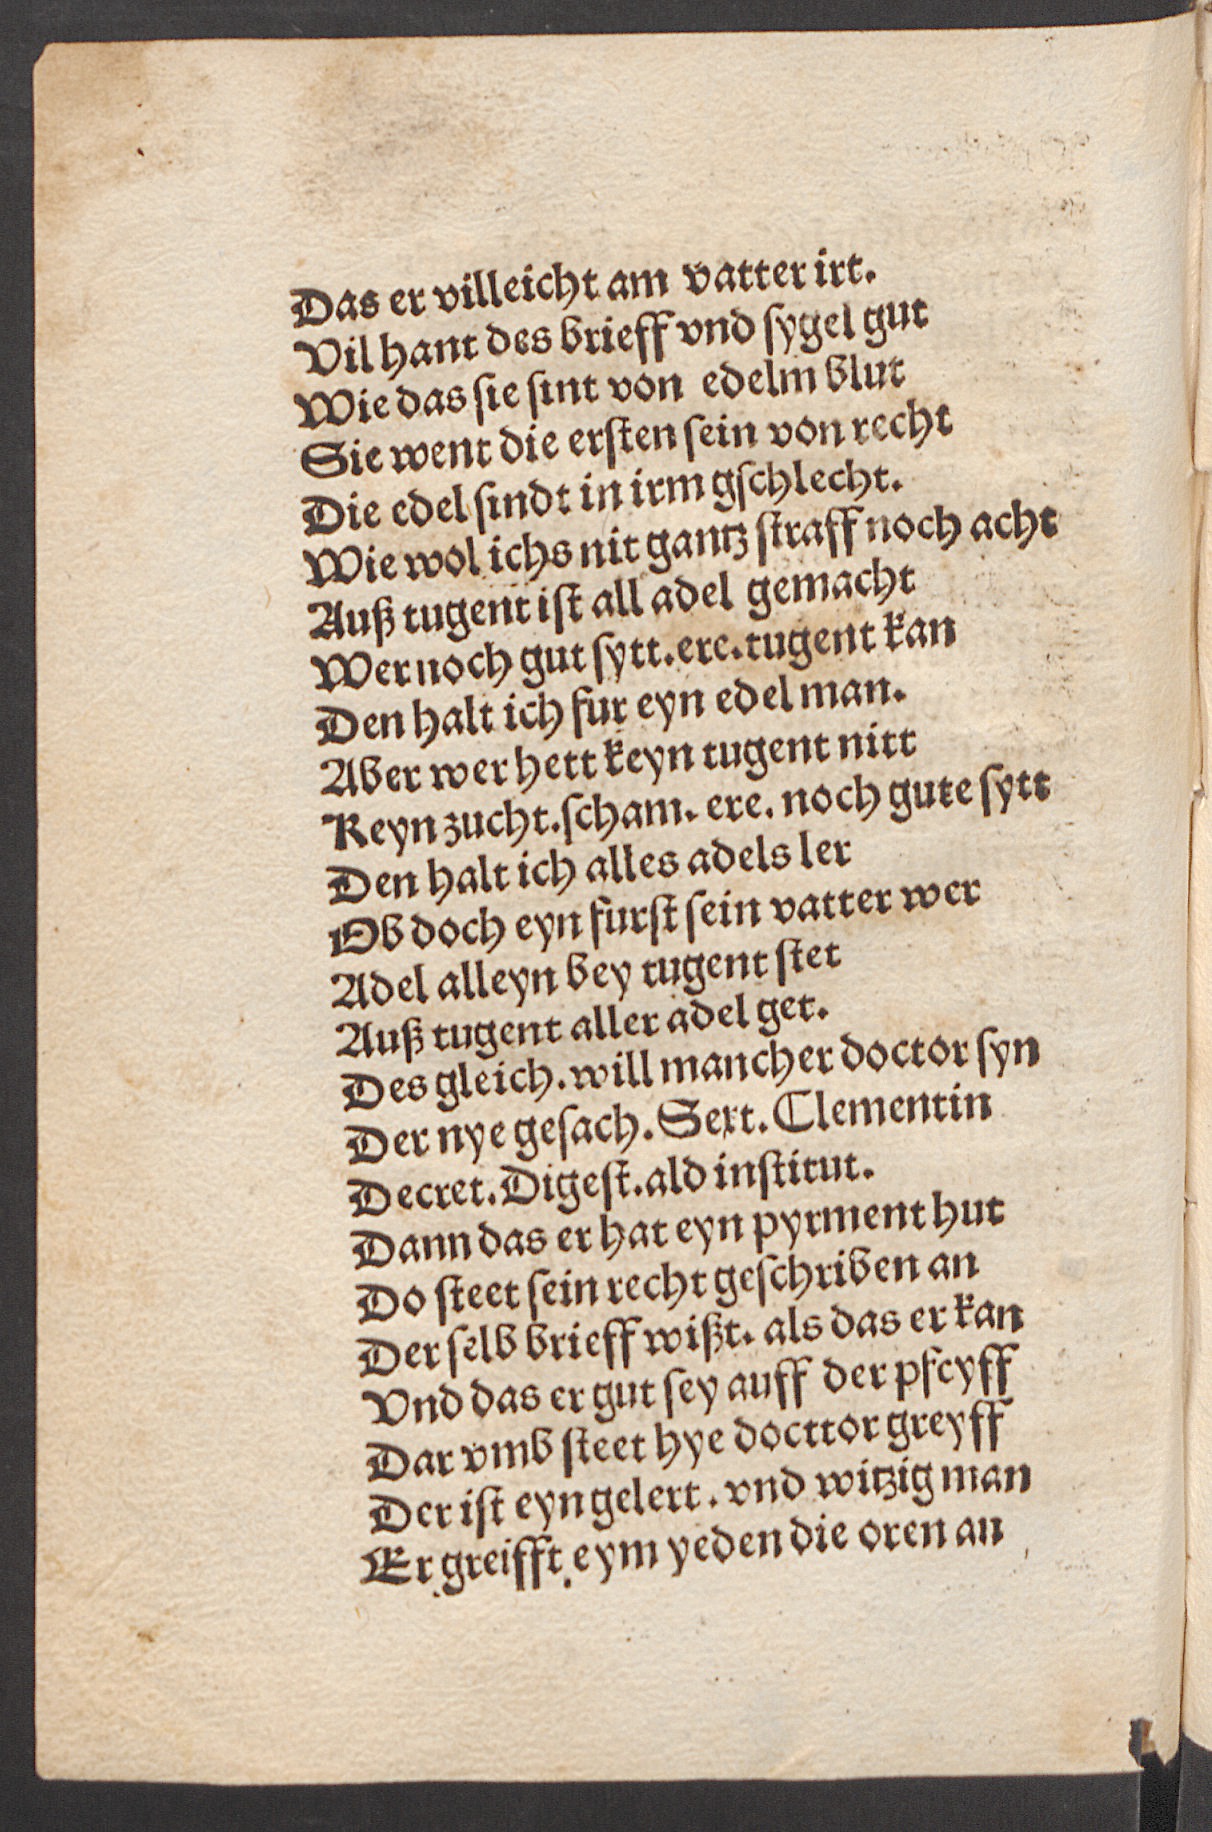 Das er villeicht am vatter irt.
Vil hant des brieff vnd sygel gut
Wie das sie sint von edelm blut
Sie went die ersten sein von recht
Die edel sindt in irm gschlecht.
Wie wol ichs nit gantz straff noch acht
Auß tugent ist all adel gemacht
Wer noch gut sytt. ere. tugent kan
Den halt ich fur eyn edel man.
Aber wer hett keyn tugent nitt
Keyn zucht. scham. ere. noch gute sytt
Den halt ich alles adels ler
Ob doch eyn furst sein vatter wer
Adel alleyn bey tugent stet
Auß tugent aller adel get.
Des gleich. will mancher doctor syn
Der nye gesach. Sext. Clementin
Decret. Digest. ald institut.
Dann das er hat eyn pyrment hut
Do steet sein recht geschriben an
Der selb brieff wißt. als das er kan
Vnd das er gut sey auff der pfeyff
Dar vmb steet hye docttor greyff
Der ist eyn gelert. vnd witzig man
Er greifft eym yeden die oren an